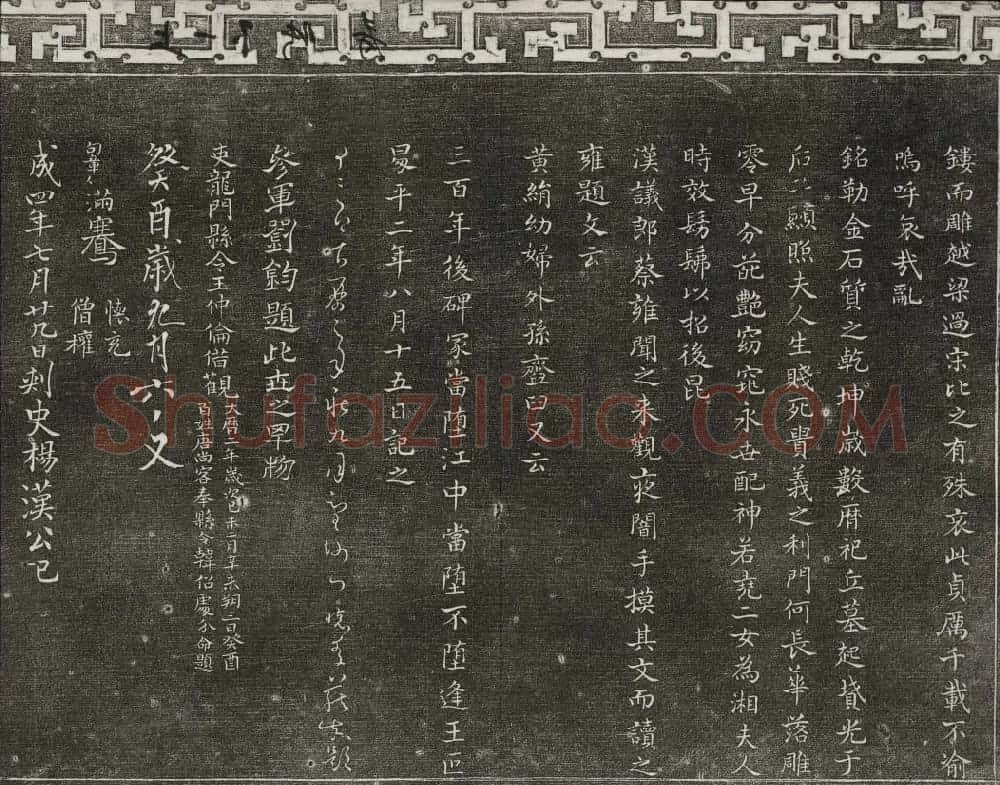 鏤而雕越梁過宋比之有殊哀此貞厲千載不渝
嗚呼哀哉亂
銘勒金石質之乾坤歲數曆祀丘墓起墳光于
后土顯照夫人生賤死貴義之利門何長華落雕
零早分葩艷窈窕永世配神若堯二女為湘夫人
時效髣髴以招後昆
漢議郎蔡雍聞之來觀夜闇手摸其文而讀之
雍題文云
黃絹幼婦外孫齏臼又云
三百年後碑冢當堕江中當堕不堕逢王叵
昇平二年八月十五日記之
參軍劉鈞題此世之罕物
吏龍門縣令王仲倫借觀
大曆二年歲次己未二月辛未朔三日癸酉
百姓唐尚客奉縣令韓偘處分命題
癸酉歲九月六日
滿騫
懷充
僧權
成四年七月廿九日刺史楊漢公記
Shufaziliao.COM